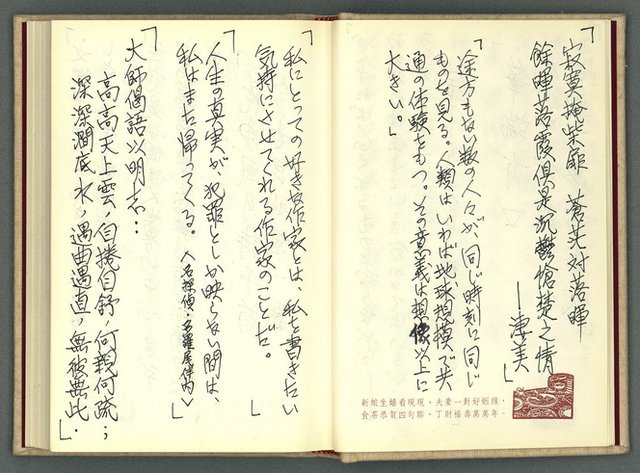 寂寞掩柴扉 蒼茫对落暉
餘暉落霞俱是沉鬱愴楚之情
—凄美」
「途方もない数の人々が、同じ時刻に同じ
ものを見る。人類はいわば地球規模で共
通の体験をもつ。その意義は想像以上に
大きい。」
新娘生婧看現現，夫妻一對好姻緣，
食茶恭賀四句聯，丁財福壽萬萬年。
「私にとっての好きな作家とは、私を書きたい
気持にさせてくれる作家のことだ。」
「人生の真実が、犯罪としか映らない間は、
私はまた帰ってくる。〈名探偵・多羅尾伴内〉」
「大師偈語以明志：
高高天上雲，自捲自舒，何親何疏；
深深澗底水，遇曲遇直，無彼無此」.